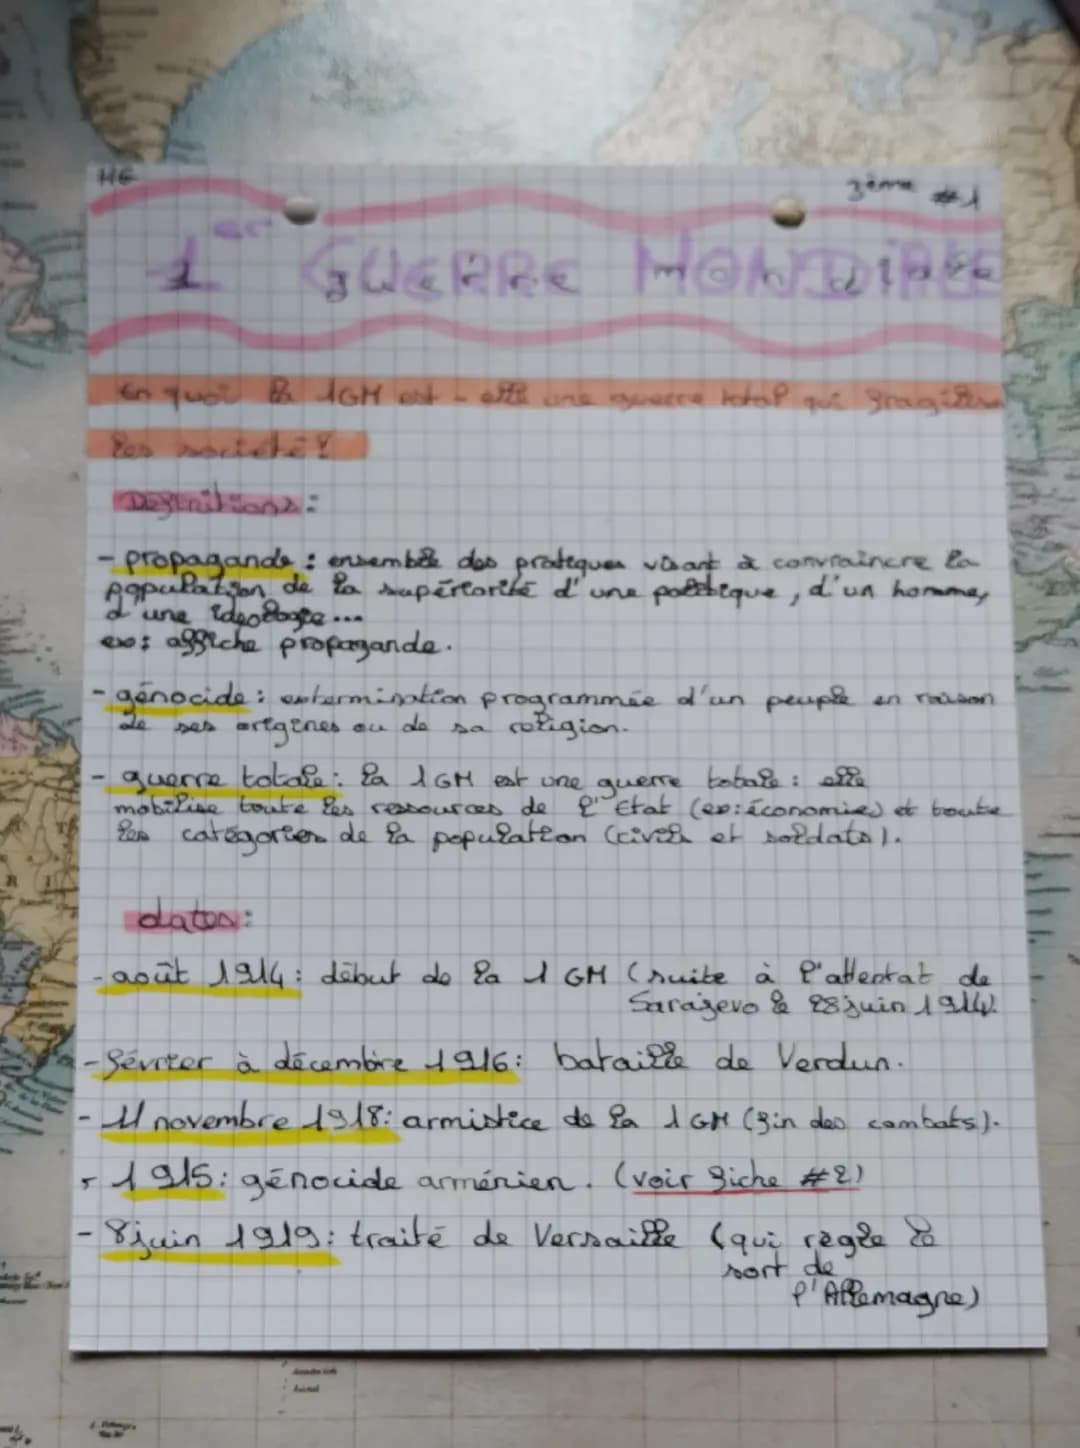 HG
3ème #1
1er GUERRE MONDIALE
En quoi la 1GM est-elle une guerre total qui fragilise
les société ?
Définitions :
- propagande : ensemble des pratiques visant à convraincre la
population de la supériorité d'une politique, d'un homme,
d'une idéologie...
ex : affiche propagande.
- génocide : extermination programmée d'un peuple en raison
de ses origines ou de sa religion.
- guerre totale : la 1GM est une guerre totale : elle
mobilise toute les ressources de l'Etat (ex: économie) et toute
les catégories de la population (civils et soldats).
dates :
- août 1914 : début de la 1 GM (suite à l'attentat de
Sarajevo le 28 juin 1914).
- Février à décembre 1916 : bataille de Verdun.
- 11 novembre 1918 : armistice de la 1 GM (fin des combats).
- 1915 : génocide arménien. (voir fiche #2)
- 8 juin 1919 : traité de Versaille (qui règle le
sort de
l'Allemagne)